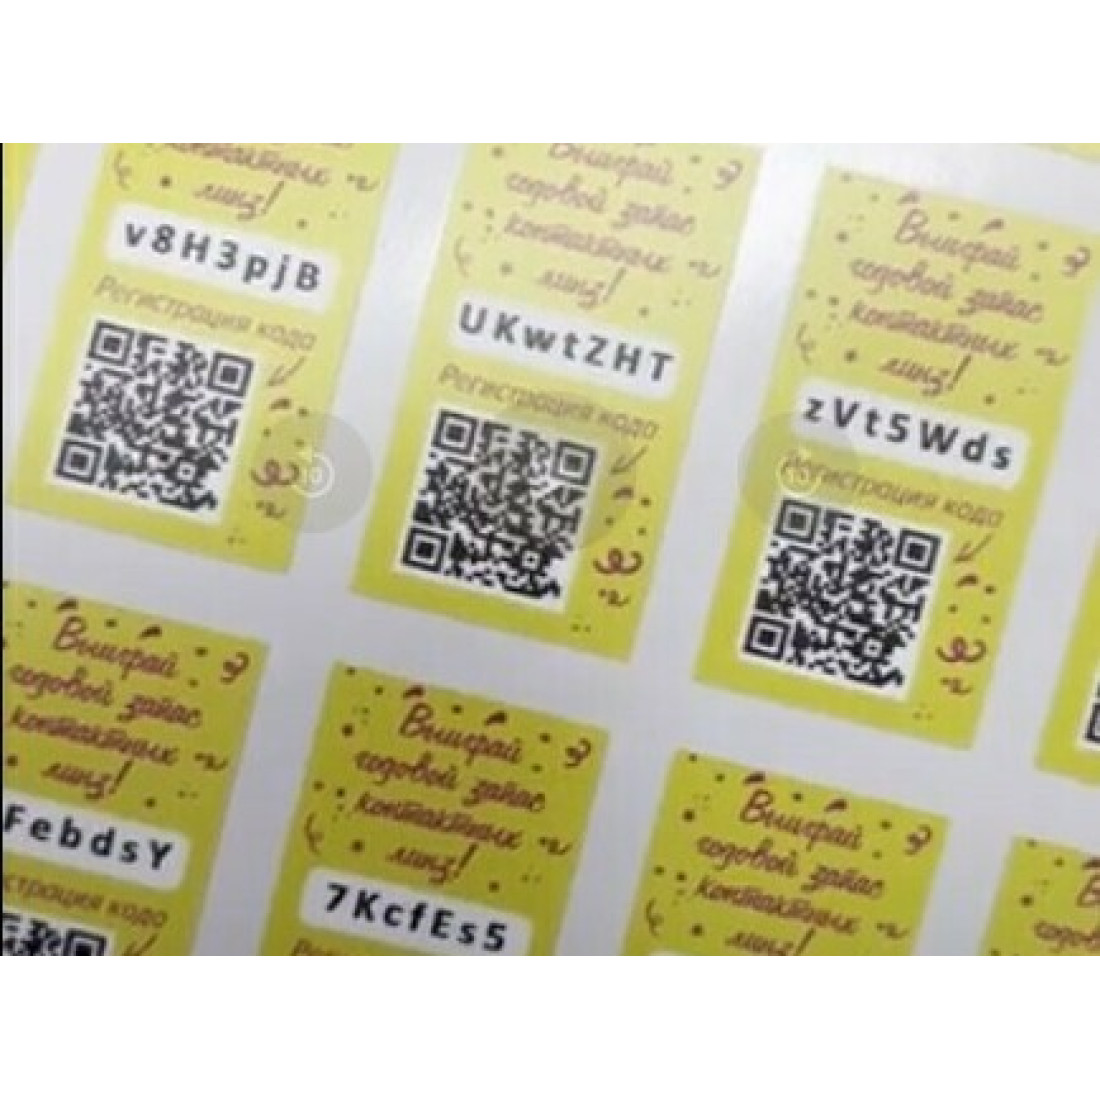 контактных
линз!
v8H3pjB
Регистрация кода
Выиграй
годовой запас
контактных
линз!
UKwtZHT
Регистрация кода
Выиграй
годовой запас
контактных
линз!
zVt5Wds
Регистрация кода
Выиграй
годовой запас
контактных
линз!
FebdsY
страция кода
Выиграй
годовой запас
контактных
линз!
7KcfEs5
Выиграй
годовой запас
контактных
линз!